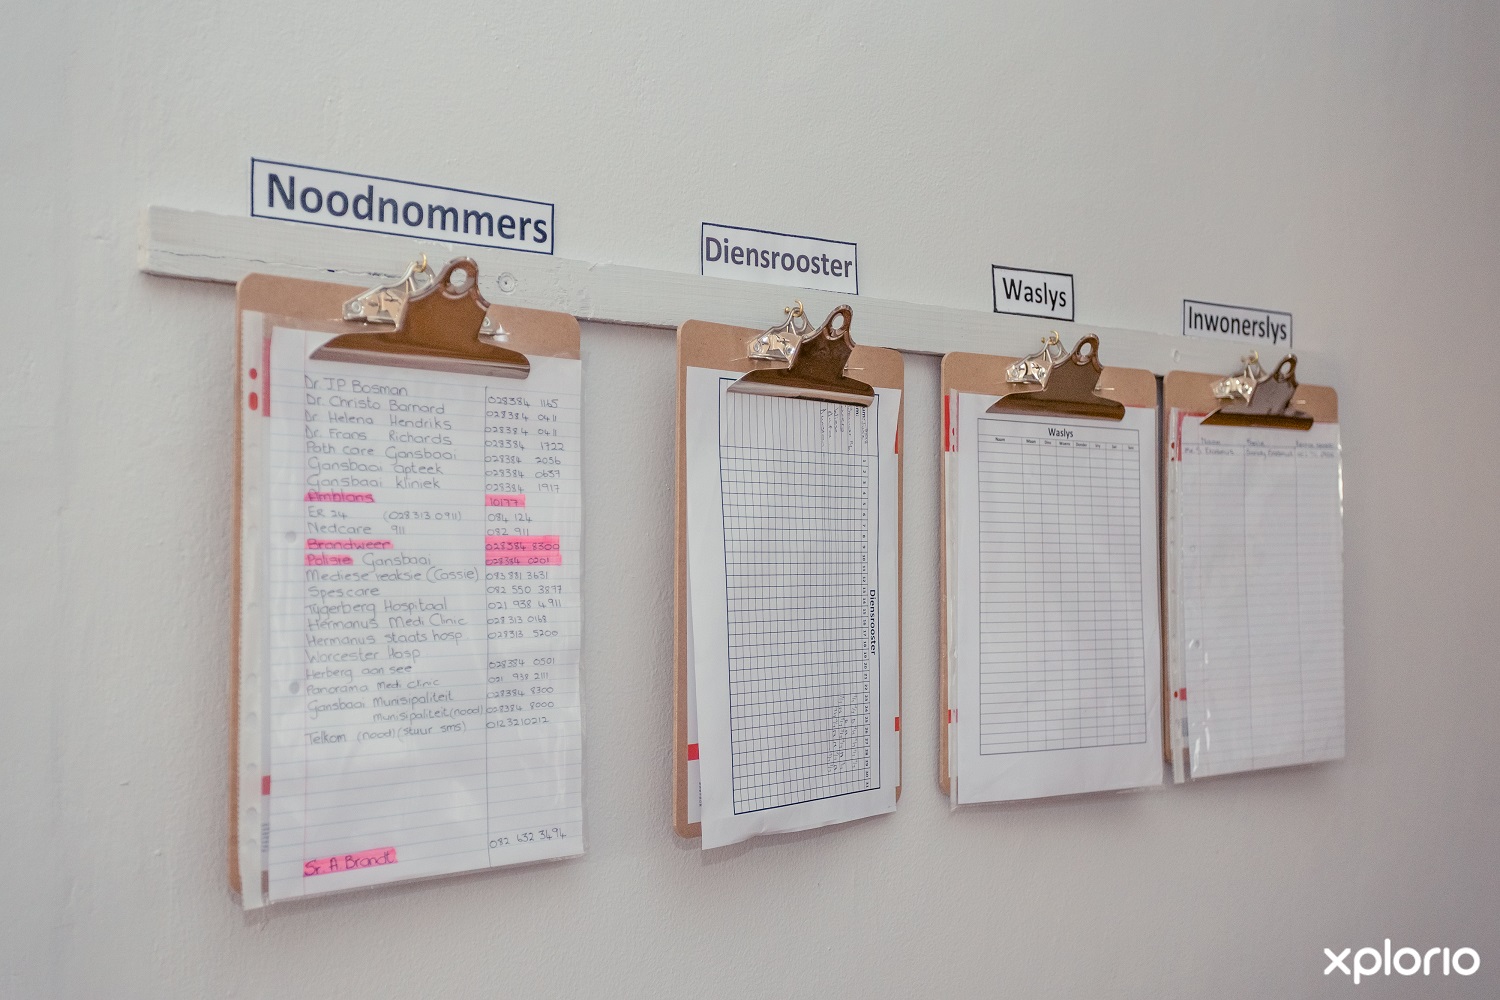 Noodnommers
Dr JP Bosman 028384 1165
Dr. Christo Barnard 028384 0411
Dr. Helena Hendriks 028384 0411
Dr. Frans Richards 028384 1722
Path care Gansbaai 028384 2036
Gansbaai apteek 028384 0637
Gansbaai kliniek 028384 1917
Amblans 10177
ER 24 (028 313 0911) 084 124
Nedcare 911 082 911
Brandweer 028384 8300
Polisie Gansbaai 028384 0201
Mediese reaksie (Cassie) 083 881 3631
Spescare 082 550 3877
Tygerberg Hospitaal 021 938 4911
Hermanus Medi Clinic 028 313 0168
Hermanus staats hosp 028313 5200
Worcester Hosp
Herberg aan see 028384 0501
Panorama medi clinic 021 938 2111
Gansbaai Munisipaliteit 028384 8300
munisipaliteit (nood) 028384 8000
Telkom (nood) (stuur sms) 0123210212
Sr. A Brandt 082 632 3494
Diensrooster
Diensrooster
Waslys
Waslys
Inwonerslys
xplorio